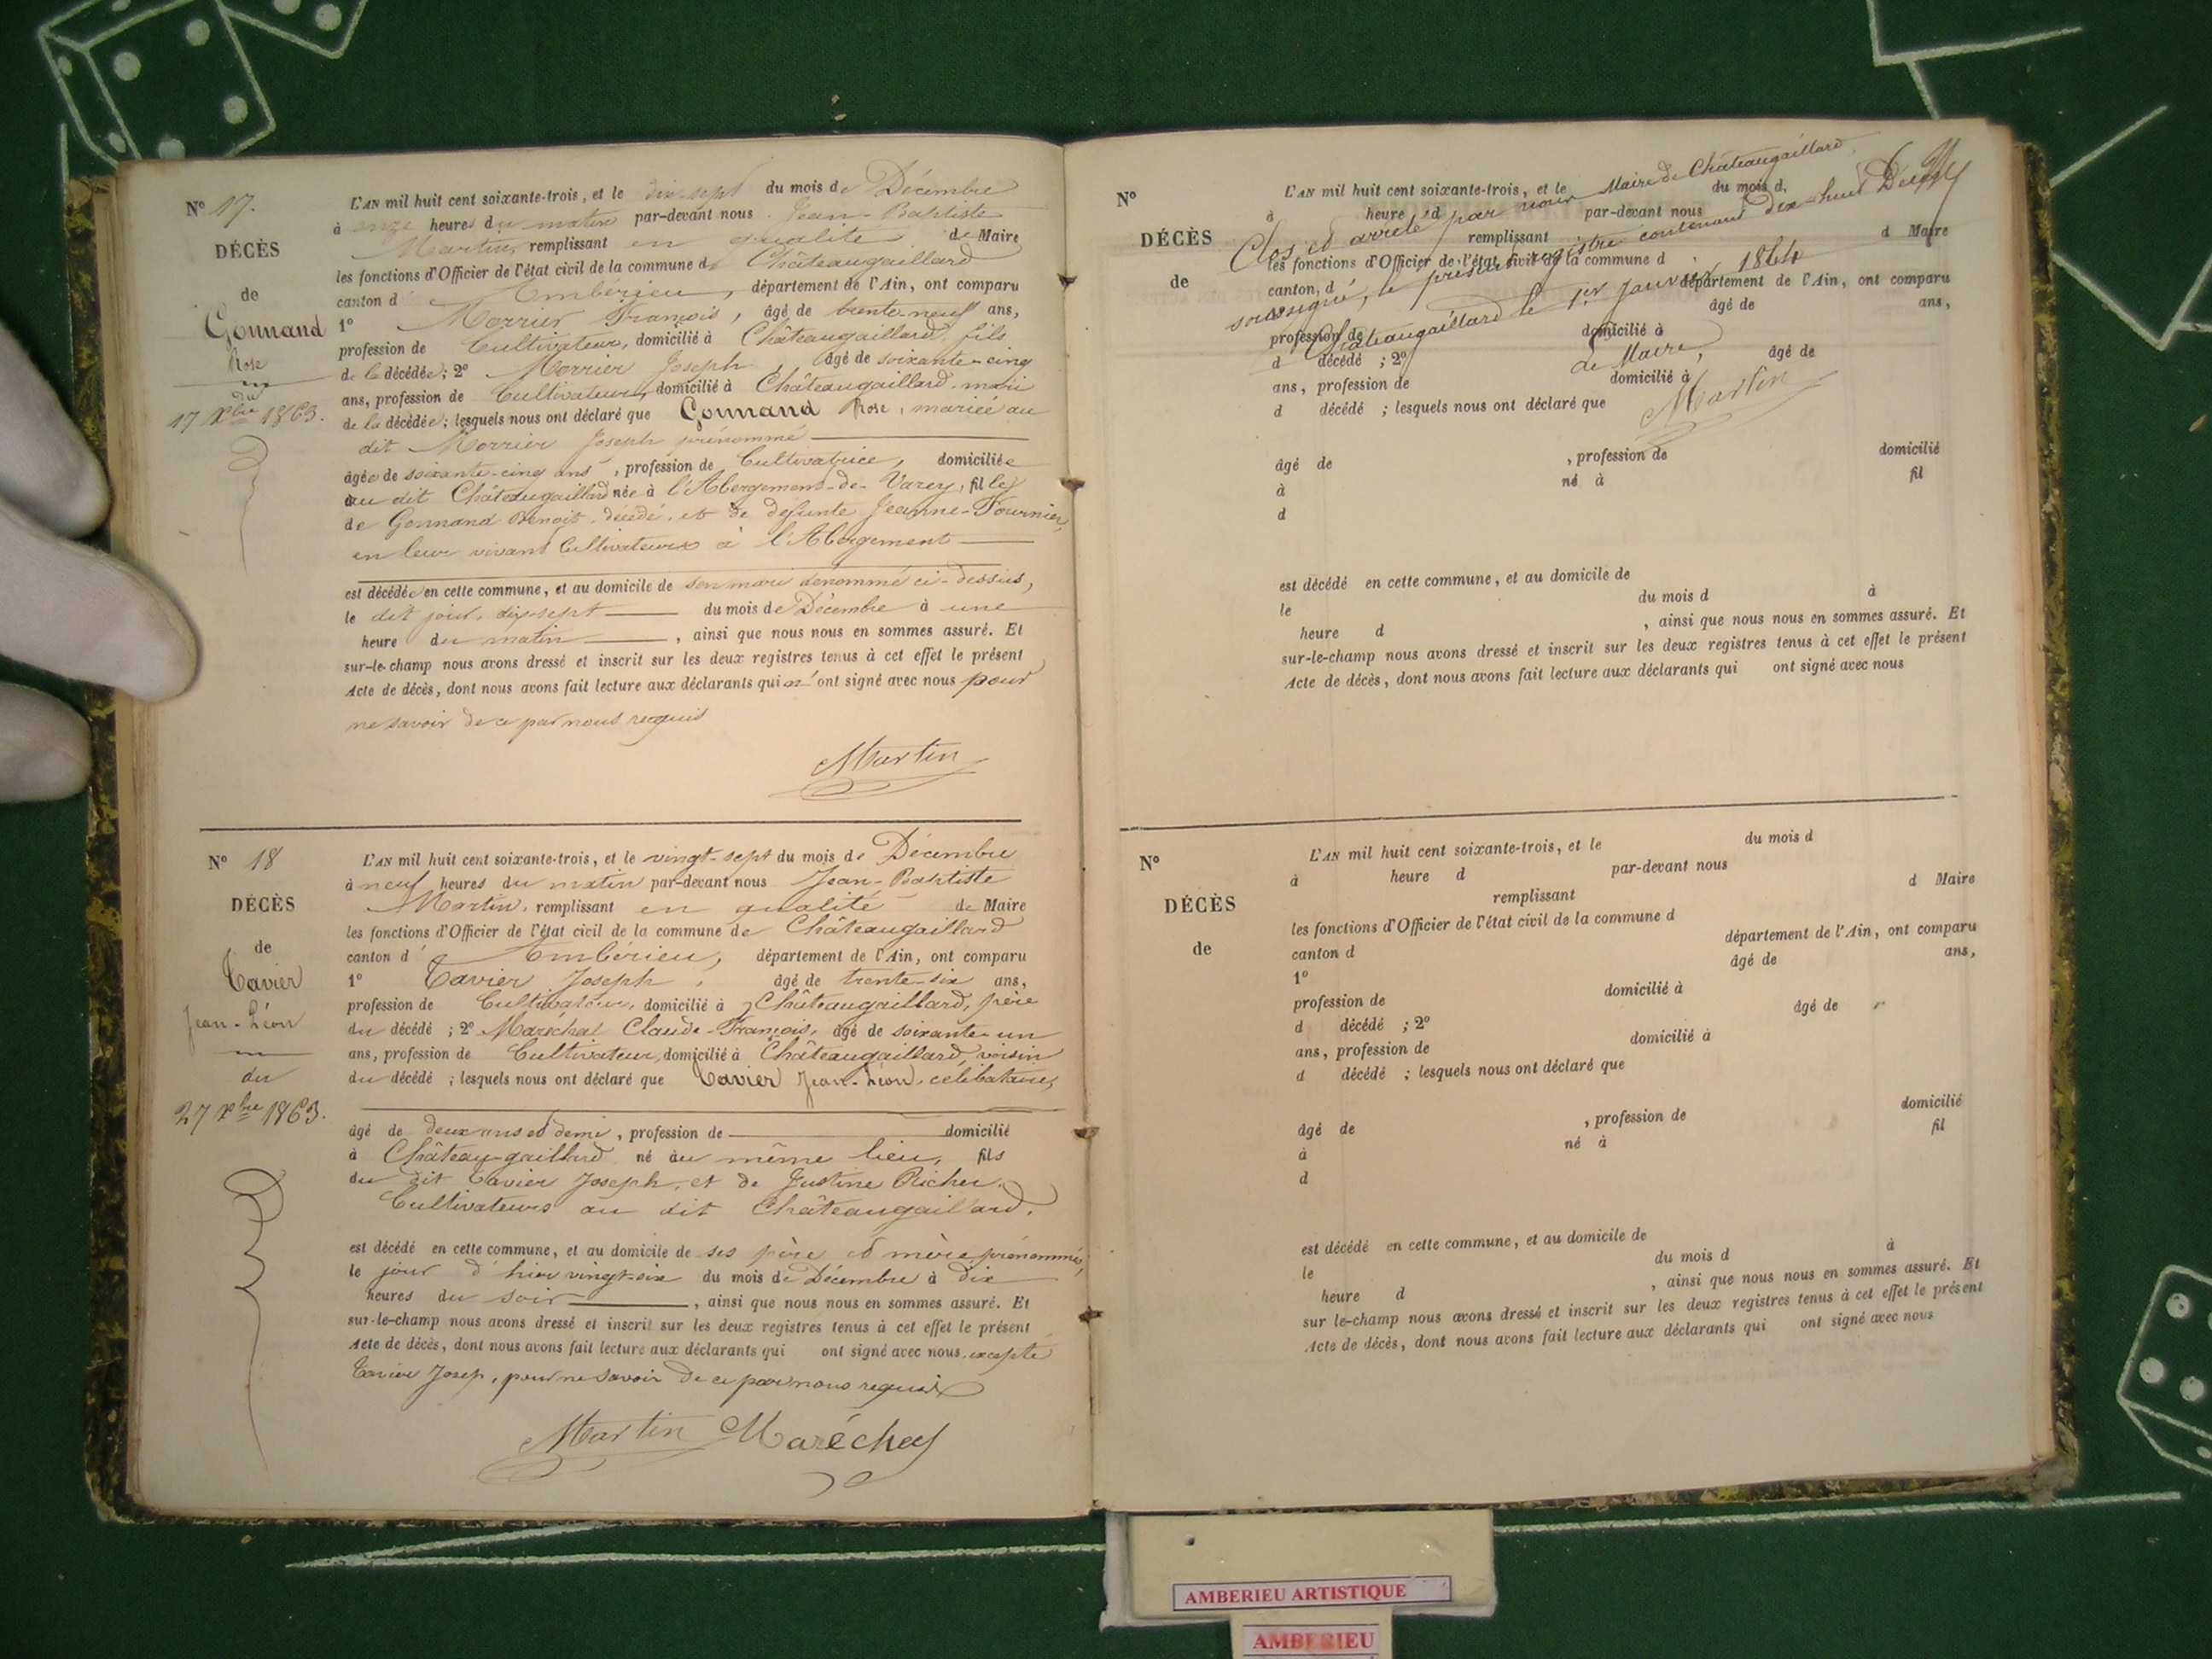 N° 17.
DÉCÈS
de
Gonnand
Rose
du
17 Xbre 1863.
L'AN mil huit cent soixante-trois, et le dix-sept du mois de Décembre
à onze heures du matin par-devant nous Jean-Baptiste
Martin, remplissant en qualité de Maire
les fonctions d'Officier de l'état civil de la commune de Châteaugaillard
canton d'Ambérieu, département de l'Ain, ont comparu
1° Morrier François, âgé de trente-neuf ans,
profession de Cultivateur, domicilié à Châteaugaillard, fils
de la décédée; 2° Morrier Joseph, âgé de soixante-cinq
ans, profession de Cultivateur, domicilié à Châteaugaillard, mari
de la décédée; lesquels nous ont déclaré que Gonnand Rose, mariée au
dit Morrier Joseph prénommé
âgée de soixante-cinq ans, profession de Cultivatrice, domiciliée
au dit Châteaugaillard née à l'Abergement-de-Varey, fille
de Gonnand Benoit, décédé, et de defunte Jeanne-Fournier,
en leur vivant Cultivateurs à l'Abergement
est décédée en cette commune, et au domicile de son mari dénommé ci-dessus,
le dit jour, dix-sept du mois de Décembre à une
heure du matin, ainsi que nous nous en sommes assuré. Et
sur-le-champ nous avons dressé et inscrit sur les deux registres tenus à cet effet le présent
Acte de décès, dont nous avons fait lecture aux déclarants qui n'ont signé avec nous pour
ne savoir de ce par nous requis
Martin
N° 18
DÉCÈS
de
Tavier
Jean-Léon
du
27 Xbre 1863.
L'AN mil huit cent soixante-trois, et le vingt-sept du mois de Décembre
à neuf heures du matin par-devant nous Jean-Baptiste
Martin, remplissant en qualité de Maire
les fonctions d'Officier de l'état civil de la commune de Châteaugaillard
canton d'Ambérieu, département de l'Ain, ont comparu
1° Tavier Joseph, âgé de trente-six ans,
profession de Cultivateur, domicilié à Châteaugaillard, père
du décédé; 2° Maréchal Claude-François, âgé de soixante-un
ans, profession de Cultivateur, domicilié à Châteaugaillard, voisin
du décédé; lesquels nous ont déclaré que Tavier Jean-Léon, célibataire,
âgé de deux ans et demi, profession de domicilié
à Château-gaillard né au même lieu, fils
du dit Tavier Joseph, et de Justine Richer,
Cultivateurs au dit Châteaugaillard.
est décédé en cette commune, et au domicile de ses père et mère prénommés,
le jour d'hier vingt-six du mois de Décembre à dix
heures du soir, ainsi que nous nous en sommes assuré. Et
sur-le-champ nous avons dressé et inscrit sur les deux registres tenus à cet effet le présent
Acte de décès, dont nous avons fait lecture aux déclarants qui ont signé avec nous, excepté
Tavier Josep, pour ne savoir de ce par nous requis
Martin Maréchal
N°
DÉCÈS
de
L'AN mil huit cent soixante-trois, et le du mois d
à heure d par-devant nous
remplissant d Maire
les fonctions d'Officier de l'état civil de la commune d
canton d département de l'Ain, ont comparu
âgé de ans,
profession de domicilié à
d décédé ; 2° âgé de
ans, profession de domicilié à
d décédé ; lesquels nous ont déclaré que
Clos et arrêté par nous Maire de Châteaugaillard,
soussigné, le présent registre contenant dix-huit Décès
Châteaugaillard le 1er Janvier 1864
Le Maire,
Martin
âgé de , profession de domicilié
à né à fil
d
est décédé en cette commune, et au domicile de
le du mois d à
heure d , ainsi que nous nous en sommes assuré. Et
sur-le-champ nous avons dressé et inscrit sur les deux registres tenus à cet effet le présent
Acte de décès, dont nous avons fait lecture aux déclarants qui ont signé avec nous
N°
DÉCÈS
de
L'AN mil huit cent soixante-trois, et le du mois d
à heure d par-devant nous
remplissant d Maire
les fonctions d'Officier de l'état civil de la commune d
canton d département de l'Ain, ont comparu
1° âgé de ans,
profession de domicilié à
d décédé ; 2° âgé de
ans, profession de domicilié à
d décédé ; lesquels nous ont déclaré que
âgé de , profession de domicilié
à né à fil
d
est décédé en cette commune, et au domicile de
le du mois d à
heure d , ainsi que nous nous en sommes assuré. Et
sur le-champ nous avons dressé et inscrit sur les deux registres tenus à cet effet le présent
Acte de décès, dont nous avons fait lecture aux déclarants qui ont signé avec nous
AMBERIEU ARTISTIQUE
AMBERIEU